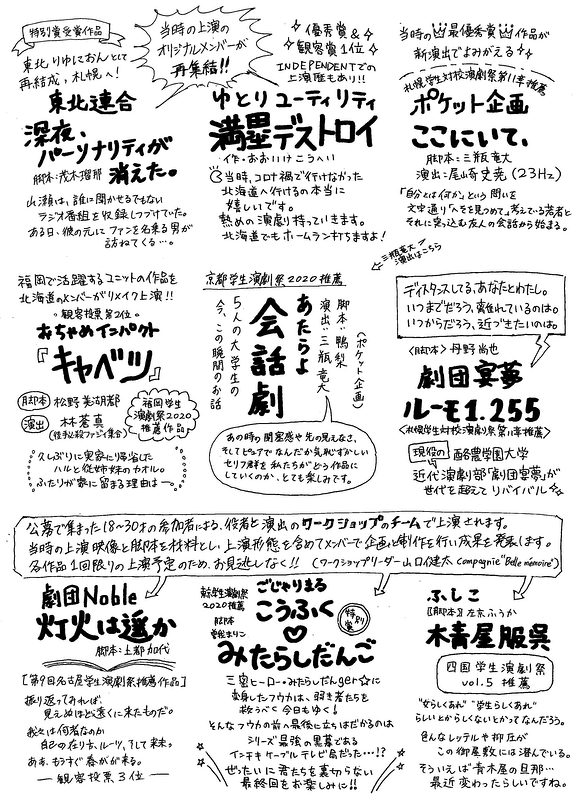 特別賞受賞作品
東北りゆにおんとして
再結成、札幌へ!
東北連合
深夜、
パーソナリティが
消えた。
脚本:茂木瑠那
山瀬は、誰に聞かせるでもない
ラジオ番組を収録しつづけていた。
ある日、彼の元にファンを名乗る男が
訪ねてくる…。
当時の上演の
オリジナルメンバーが
再集結!!
優秀賞&
観客賞1位
INDEPENDENTでの
上演歴もあり!!
ゆとりユーティリティ
満塁デストロイ
作・おおいけこうへい
当時、コロナ禍で行けなかった
北海道へ行けるの本当に
嬉しいです。
熱めの演劇持っていきます。
北海道でもホームラン打ちますよ!
当時の最優秀賞作品が
新演出でよみがえる
札幌学生対校演劇祭第11季推薦
ポケット企画
ここにいて、
脚本:三瓶竜大
演出:尾山奇史尭(23Hz)
「自分とは何か」という問いを
文字通り「人をを見つめて」考えている若者と
それに突っ込む友人の会話から始まる。
三瓶竜大
演出はこちら
福岡で活躍するユニットの作品を
北海道のメンバーがリメイク上演!!
観客投票第2位
おちゃめインパクト
『キャベツ』
脚本 松野美湖都
演出 林蒼真
福岡学生
演劇祭2020
推薦作品
久しぶりに実家に帰省した
ハルと従姉妹のカオル。
ふたりが家に留まる理由は…
京都学生演劇祭2020推薦
あたらよ
会話劇
脚本:鴨梨
演出:三瓶竜大
(ポケット企画)
5人の大学生の
今、この瞬間のお話
あの時の閉塞感や先の見えなさ、
そしてピュアでなんだか気恥ずかしい
セリフ群を私たちがどう作品に
していくのか、とても楽しみです。
ディスタンスしてる、あなたとわたし。
いつまでだろう、離れているのは。
いつからだろう、近づきたいのは。
〈脚本〉丹野尚也
劇団宴夢
ルーモ1.255
〈札幌学生対校演劇祭第11季推薦〉
現役の酪農学園大学
近代演劇部「劇団宴夢」が
世代を超えてリバイバル
公募で集まった18〜30才の参加者による、役者と演出のワークショップのチームで上演されます。
当時の上演映像と脚本を材料とし、上演形態を含めてメンバーで企画と制作を行い成果を発表します。
各作品1回限りの上演予定のため、お見逃しなく!!(ワークショップリーダー山口健太 compagnie "Belle mémoire")
劇団Noble
灯火は遥か
脚本:土都加代
[第9回名古屋学生演劇祭推薦作品]
振り返ってみれば、
見えぬほど遠くに来たものだ。
我々は何者なのか
自己の在り方、ルーツ、そして未来。
ああ、もうすぐ春がが来る。
―観客投票3位―
2020推薦
脚本
ごじゃりまる
こうふく
♡
みたらしだんご
特別賞
三蜜ヒーロー・みたらしだんger☆に
変身したフウカは、弱き者たちを
救うべく今日もゆく!
そんなフウカの前へ最後に立ちはだかるのは
シリーズ最強の黒幕である
インチキケーブルテレビ局だった…!?
ぜったいに君たちを裏切らない
最終回をお楽しみに!!
ふしこ
[脚本]左京ふうか
木青屋服呉
四国学生演劇祭
vol.5推薦
"女らしくあれ""学生らしくあれ"
らしいとからしくないとかってなんだろう。
色んなレッテルや抑圧が
この御屋敷には潜んでいる。
そういえば青木屋の旦那…
最近変わったらしいですね。